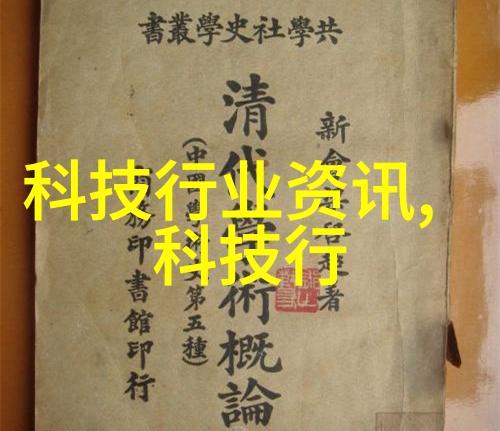 共學社史學叢書
新會超著
清代學術概論
(中國學第五種)
務印書館印行
科技行业资讯,
科技行